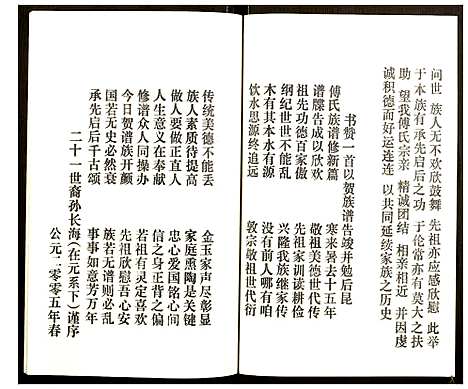 问世 族人无不欢欣鼓舞 先祖亦应感欣慰 此举
于本族有承先启后之功 于伦常亦有莫大之扶
助 望我傅氏宗亲 精诚团结 相亲相近 并因虔
诚积德而好运连连 以共同延续家族之历史
书赞一首以贺族谱告竣并勉后昆
傅氏族谱修新篇 寒来暑去十五年
谱牒告成以欣欢 敬祖美德世代传
祖先功德百家傲 先祖家训读耕俭
纲纪世世不能乱 兴隆我族继家传
木有其本水有源 没有前人哪有咱
饮水思源终追远 敦宗敬祖世代衍
传统美德不能丢 金玉家声尽彰显
族人素质待提高 家庭熏陶是关键
做人要做正直人 忠心爱国铭心间
人生意义在奉献 信之身正背之偏
修谱众人同操办 若有灵定喜欢
今日贺谱族开颜 先祖欣慰吾心安
国若无史必然衰 族若无谱则必乱
承先启后千古颂 事事如意芳万年
二十一世裔孙长海(在元系下)谨序
公元二零零五年春